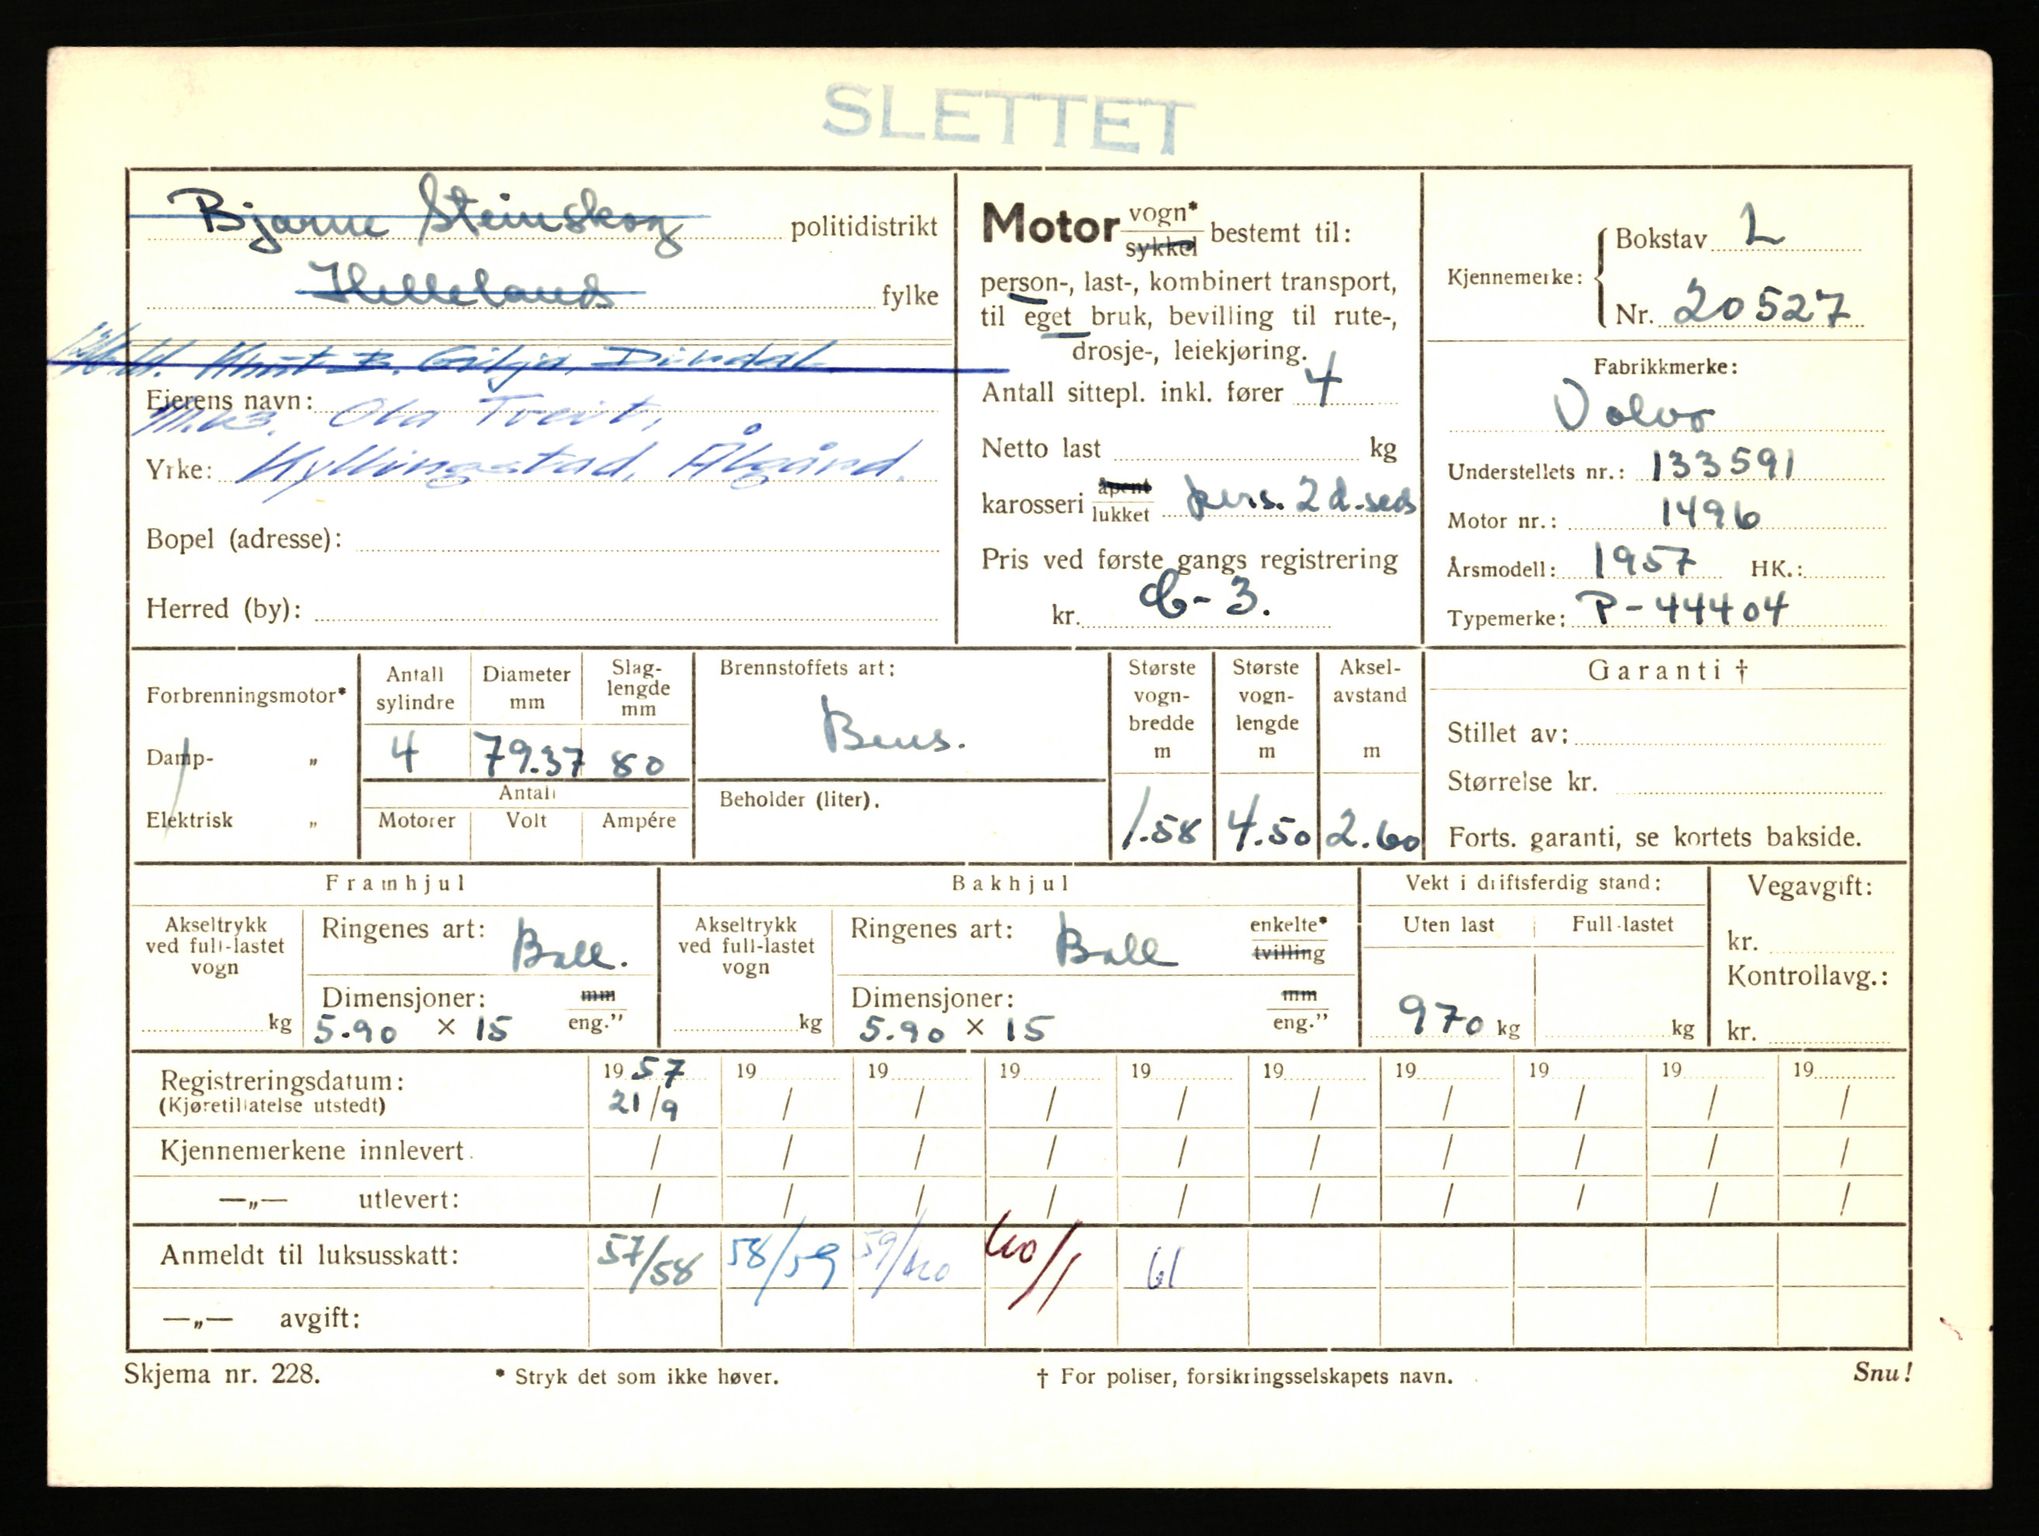 SLETTET
Bjarne Steinskog politidistrikt
Helleland fylke
Knut B. Gilja, Dirdal
Eierens navn: Ola Tveit,
Yrke: Kyllingstad, Ålgård.
Bopel (adresse):
Herred (by):
Motor vogn* sykkel bestemt til:
person-, last-, kombinert transport,
til eget bruk, bevilling til rute-,
drosje-, leiekjøring.
Antall sittepl. inkl. fører 4
Netto last kg
karosseri åpent lukket pers. 2 d. sed
Pris ved første gangs registrering
kr. C-3.
Kjennemerke: Bokstav L
Nr. 20527
Fabrikkmerke:
Volvo
Understellets nr.: 133591
Motor nr.: 1496
Årsmodell: 1957 HK.:
Typemerke: P-44404
Forbrenningsmotor*
Damp- „
Elektrisk „
Antall sylindre 4
Diameter mm 79.37
Slaglengde mm 80
Antall
Motorer Volt Ampére
Brennstoffets art:
Bens.
Beholder (liter).
Største vogn-bredde m 1.58
Største vogn-lengde m 4.50
Aksel-avstand m 2.60
Garanti †
Stillet av:
Størrelse kr.
Forts. garanti, se kortets bakside.
Framhjul
Akseltrykk ved full-lastet vogn kg
Ringenes art: Ball.
Dimensjoner: mm eng."
5.90 × 15
Bakhjul
Akseltrykk ved full-lastet vogn kg
Ringenes art: Ball enkelte* tvilling
Dimensjoner: mm eng."
5.90 × 15
Vekt i driftsferdig stand:
Uten last Full-lastet
970 kg kg
Vegavgift:
kr.
Kontrollavg.:
kr.
Registreringsdatum: 19 57 19 19 19 19 19 19 19 19 19
(Kjøretillatelse utstedt) 21/9 / / / / / / / / /
Kjennemerkene innlevert / / / / / / / / / /
—„— utlevert: / / / / / / / / / /
Anmeldt til luksusskatt: 57/58 58/59 59/60 60/1 61
—„— avgift:
Skjema nr. 228. * Stryk det som ikke høver. † For poliser, forsikringsselskapets navn. Snu!